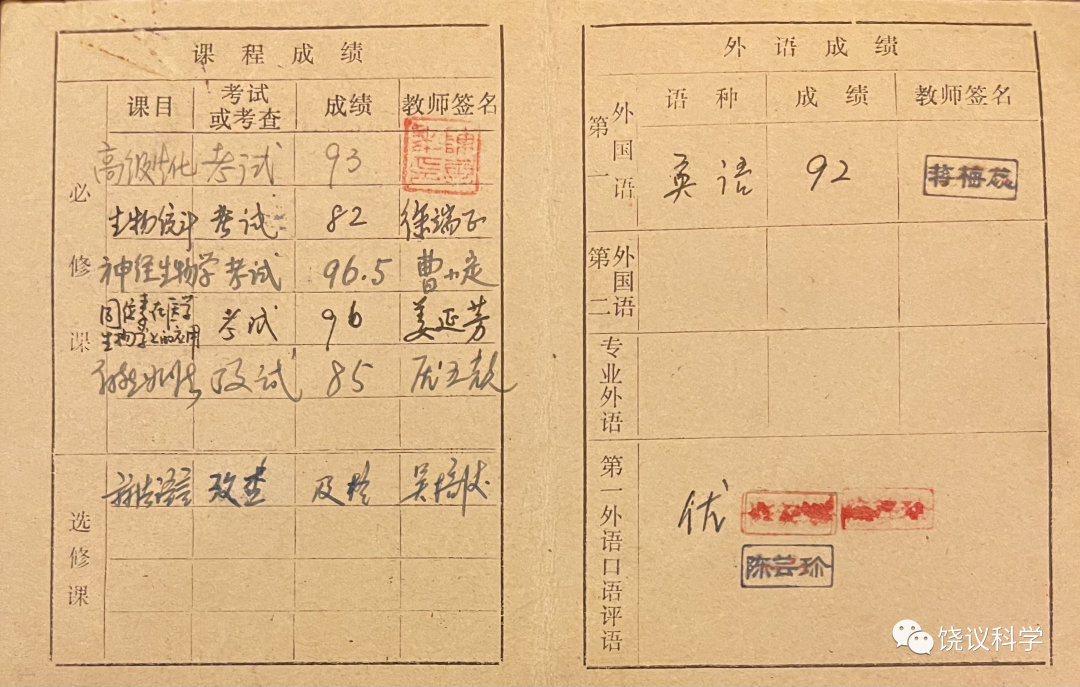 课程成绩
课目 考试或考查 成绩 教师签名
必修课
高级生化 考试 93
生物统计 考试 82 徐端正
神经生物学 考试 96.5 曹小定
同位素在医学生物学上的应用 考试 96 姜延芳
考试 85
选修课
考查 及格
外语成绩
语种 成绩 教师签名
第一外国语 英语 92 蒋梅蕊
第二外国语
专业外语
第一外语口语评语 优
陈芸珍
饶议科学